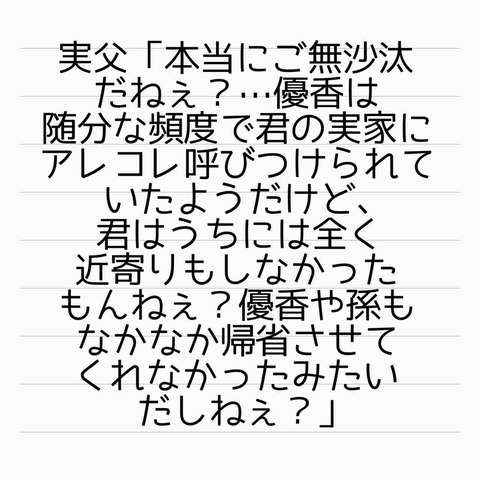 実父「本当にご無沙汰
だねぇ？…優香は
随分な頻度で君の実家に
アレコレ呼びつけられて
いたようだけど、
君はうちには全く
近寄りもしなかった
もんねぇ？優香や孫も
なかなか帰省させて
くれなかったみたい
だしねぇ？」